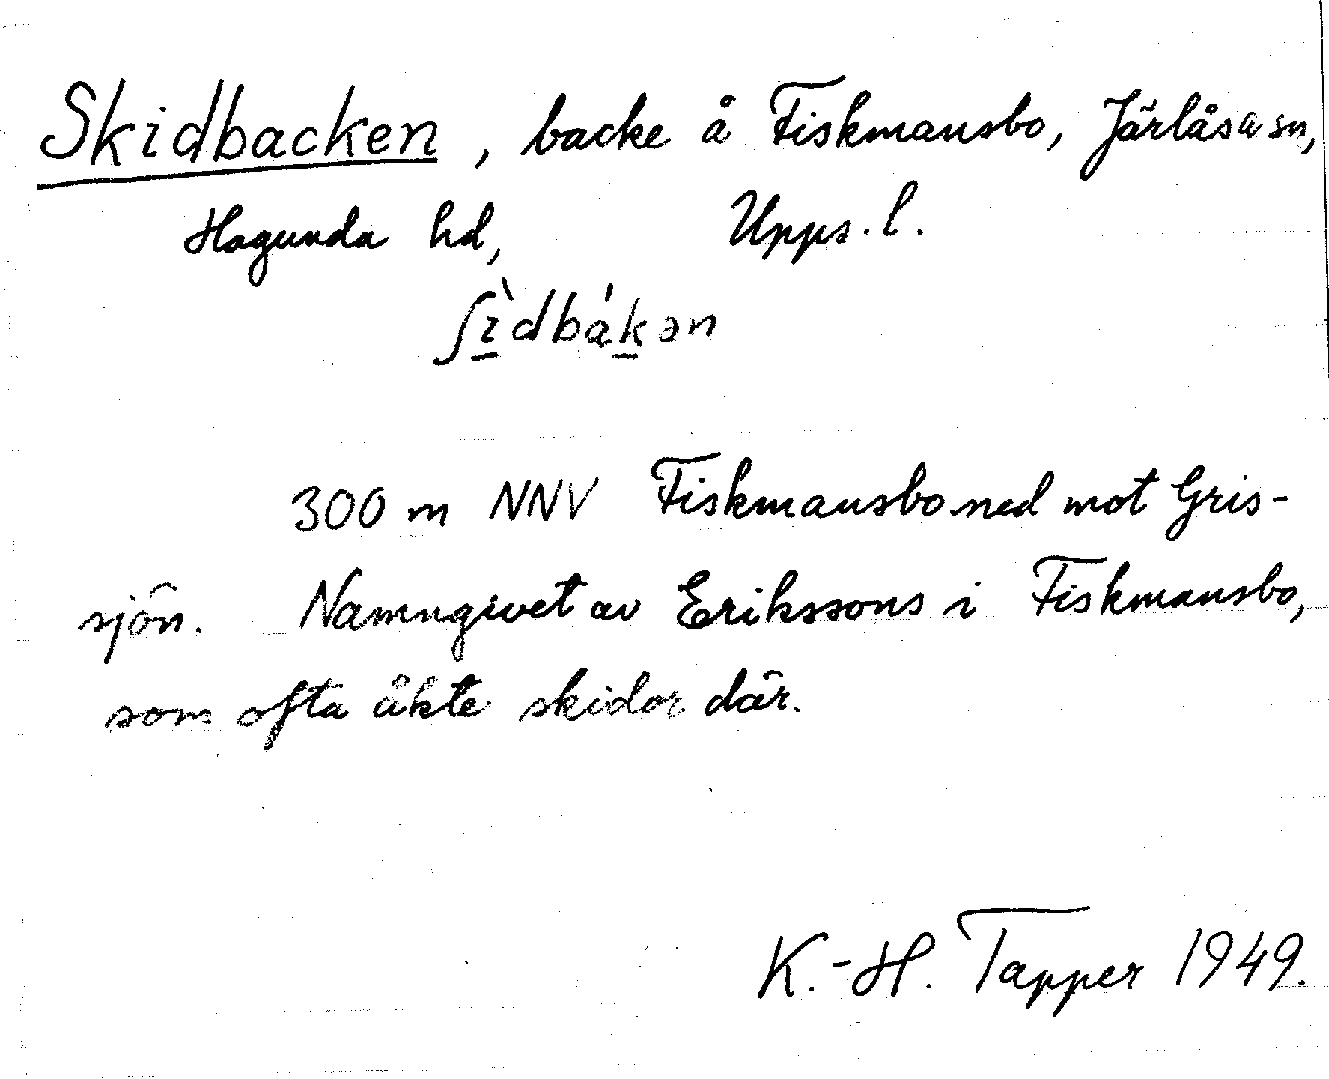 Skidbacken, backe å Fiskmansbo, Järlåsa sn,
Hagunda hd, Upps. l.
ʃı̀dbákən
300 m NNV Fiskmansbo ned mot Gris-
sjön. Namngivet av Erikssons i Fiskmansbo,
som ofta åkte skidor där.
K.-H. Tapper 1949.